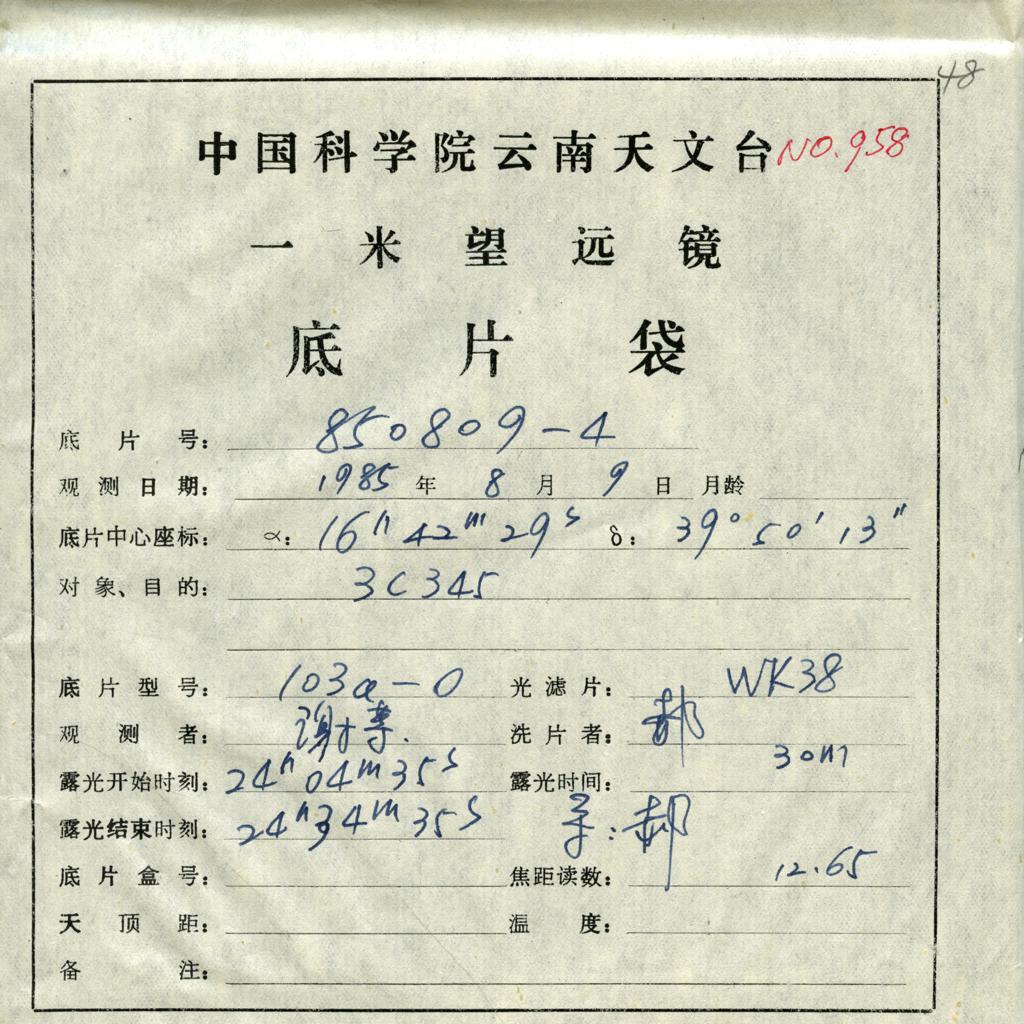 48
中国科学院云南天文台 NO.958
一米望远镜
底片袋
底片号: 850809-4
观测日期: 1985年 8月 9日 月龄
底片中心座标: α: 16h 42m 29s δ: 39° 50′ 13″
对象、目的: 3C345
底片型号: 103a-O 光滤片: WK38
观测者: 洗片者: 郝
露光开始时刻: 24h 04m 35s 露光时间: 30m
露光结束时刻: 24h 34m 35s 导: 郝
底片盒号: 焦距读数: 12.65
天顶距: 温度:
备注: